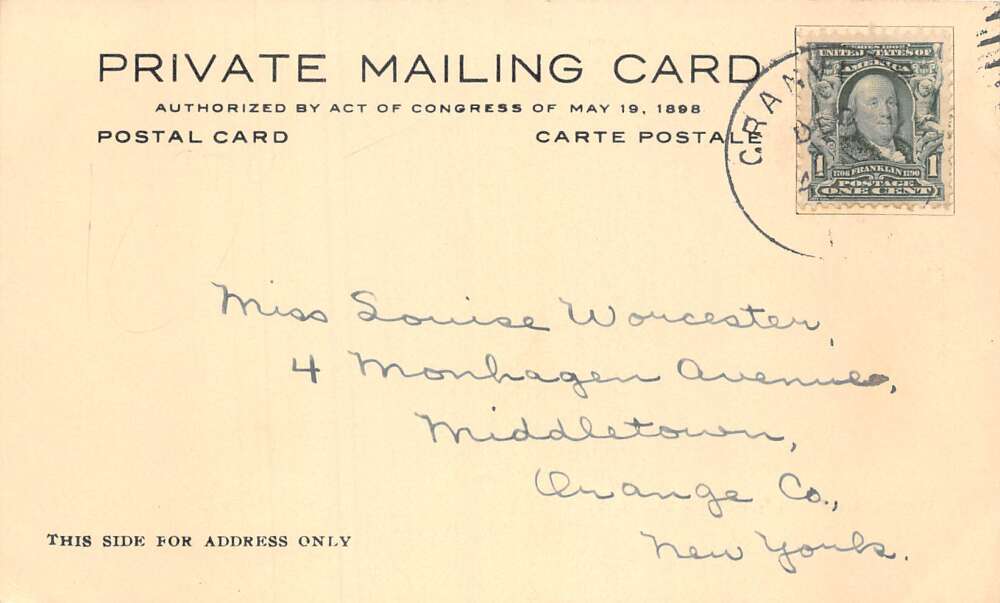 PRIVATE MAILING CARD
AUTHORIZED BY ACT OF CONGRESS OF MAY 19, 1898
POSTAL CARD CARTE POSTALE
SERIES 1902
UNITED STATES OF
AMERICA
1 1706 FRANKLIN 1790 1
POSTAGE
ONE CENT
Miss Louise Worcester,
4 Monhagen Avenue,
Middletown,
Orange Co.,
New York.
THIS SIDE FOR ADDRESS ONLY